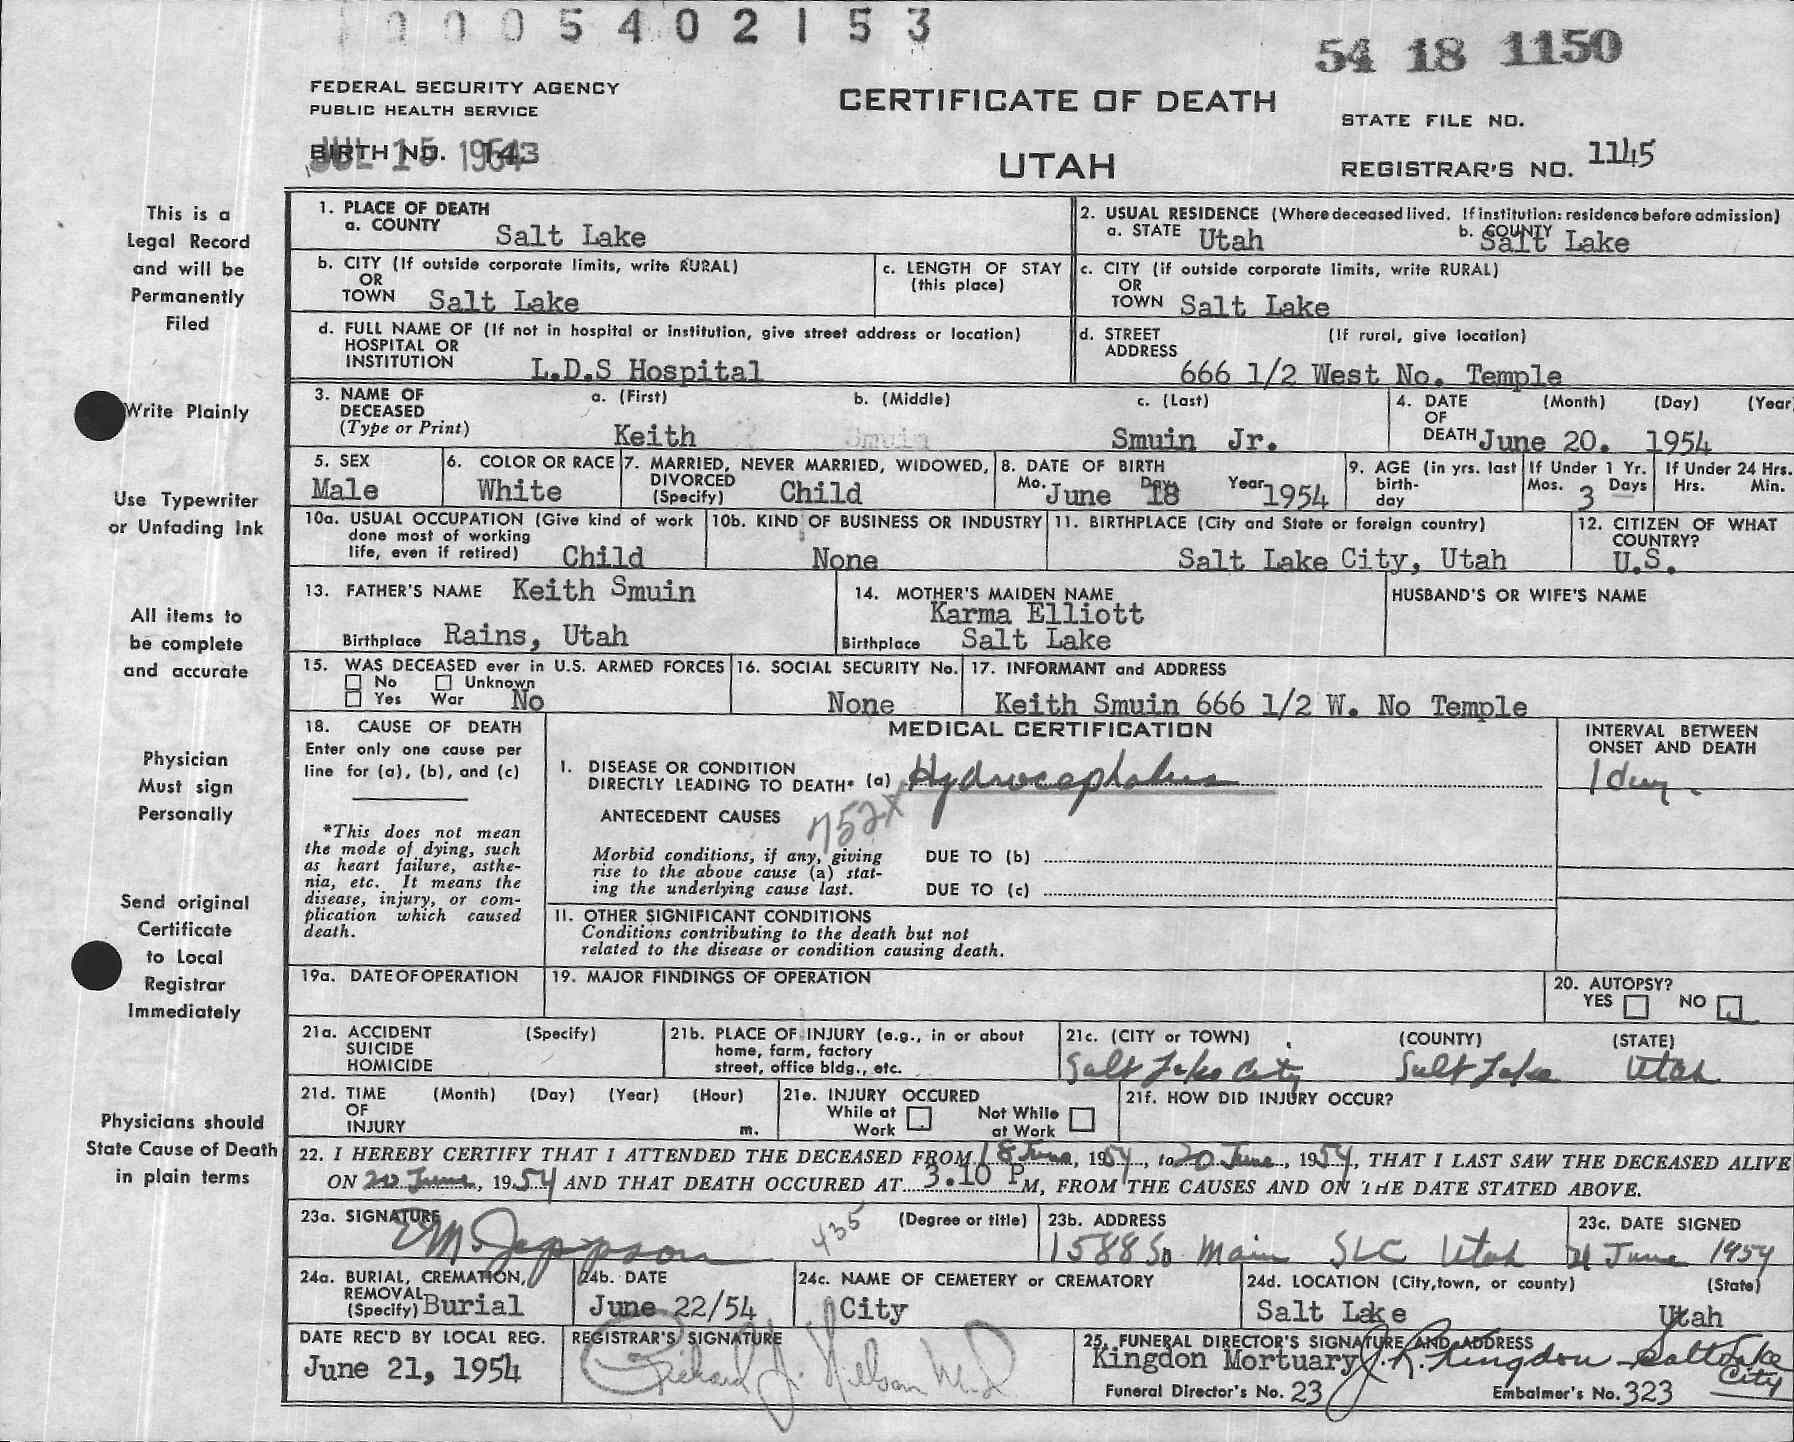 0005402153
54 18 1150
FEDERAL SECURITY AGENCY
PUBLIC HEALTH SERVICE
CERTIFICATE OF DEATH
STATE FILE NO.
BIRTH NO. 143
JUL 15 1954
UTAH
REGISTRAR'S NO. 1145
This is a
Legal Record
and will be
Permanently
Filed
Write Plainly
Use Typewriter
or Unfading Ink
All items to
be complete
and accurate
Physician
Must sign
Personally
Send original
Certificate
to Local
Registrar
Immediately
Physicians should
State Cause of Death
in plain terms
1. PLACE OF DEATH
a. COUNTY Salt Lake
2. USUAL RESIDENCE (Where deceased lived. If institution: residence before admission)
a. STATE Utah b. COUNTY Salt Lake
b. CITY (If outside corporate limits, write RURAL)
OR
TOWN Salt Lake
c. LENGTH OF STAY
(this place)
c. CITY (if outside corporate limits, write RURAL)
OR
TOWN Salt Lake
d. FULL NAME OF (If not in hospital or institution, give street address or location)
HOSPITAL OR
INSTITUTION L.D.S Hospital
d. STREET (If rural, give location)
ADDRESS
666 1/2 West No. Temple
3. NAME OF
DECEASED
(Type or Print)
a. (First) b. (Middle) c. (Last)
Keith Smuin Smuin Jr.
4. DATE (Month) (Day) (Year
OF
DEATH June 20. 1954
5. SEX
Male
6. COLOR OR RACE
White
7. MARRIED, NEVER MARRIED, WIDOWED,
DIVORCED
(Specify) Child
8. DATE OF BIRTH
Mo. June Day 18 Year 1954
9. AGE (in yrs. last
birth-
day
If Under 1 Yr.
Mos. 3 Days
If Under 24 Hrs.
Hrs. Min.
10a. USUAL OCCUPATION (Give kind of work
done most of working
life, even if retired) Child
10b. KIND OF BUSINESS OR INDUSTRY
None
11. BIRTHPLACE (City and State or foreign country)
Salt Lake City, Utah
12. CITIZEN OF WHAT
COUNTRY?
U.S.
13. FATHER'S NAME Keith Smuin
Birthplace Rains, Utah
14. MOTHER'S MAIDEN NAME
Karma Elliott
Birthplace Salt Lake
HUSBAND'S OR WIFE'S NAME
15. WAS DECEASED ever in U.S. ARMED FORCES
No Unknown
Yes War No
16. SOCIAL SECURITY No.
None
17. INFORMANT and ADDRESS
Keith Smuin 666 1/2 W. No Temple
18. CAUSE OF DEATH
Enter only one cause per
line for (a), (b), and (c)
*This does not mean
the mode of dying, such
as heart failure, asthe-
nia, etc. It means the
disease, injury, or com-
plication which caused
death.
MEDICAL CERTIFICATION
INTERVAL BETWEEN
ONSET AND DEATH
1 day.
I. DISEASE OR CONDITION
DIRECTLY LEADING TO DEATH* (a) Hydrocephalus
ANTECEDENT CAUSES 752X
Morbid conditions, if any, giving
rise to the above cause (a) stat-
ing the underlying cause last.
DUE TO (b)
DUE TO (c)
II. OTHER SIGNIFICANT CONDITIONS
Conditions contributing to the death but not
related to the disease or condition causing death.
19a. DATE OF OPERATION
19. MAJOR FINDINGS OF OPERATION
20. AUTOPSY?
YES NO
21a. ACCIDENT (Specify)
SUICIDE
HOMICIDE
21b. PLACE OF INJURY (e.g., in or about
home, farm, factory
street, office bldg., etc.
21c. (CITY or TOWN) (COUNTY) (STATE)
Salt Lake City Salt Lake Utah
21d. TIME (Month) (Day) (Year) (Hour)
OF
INJURY m.
21e. INJURY OCCURED
While at Work
Not While at Work
21f. HOW DID INJURY OCCUR?
22. I HEREBY CERTIFY THAT I ATTENDED THE DECEASED FROM 18 June, 1954, to 20 June, 1954, THAT I LAST SAW THE DECEASED ALIVE
ON 20 June, 1954 AND THAT DEATH OCCURED AT 3.10 P M, FROM THE CAUSES AND ON THE DATE STATED ABOVE.
23a. SIGNATURE (Degree or title)
E M Jeppson 435
23b. ADDRESS
1588 So Main SLC Utah
23c. DATE SIGNED
21 June 1954
24a. BURIAL, CREMATION,
REMOVAL
(Specify) Burial
24b. DATE
June 22/54
24c. NAME OF CEMETERY or CREMATORY
City
24d. LOCATION (City, town, or county) (State)
Salt Lake Utah
DATE REC'D BY LOCAL REG.
June 21, 1954
REGISTRAR'S SIGNATURE
Richard J. Nelson M.D
25. FUNERAL DIRECTOR'S SIGNATURE AND ADDRESS
Kingdon Mortuary J. R. Kingdon - Salt Lake City
Funeral Director's No. 23 Embalmer's No. 323